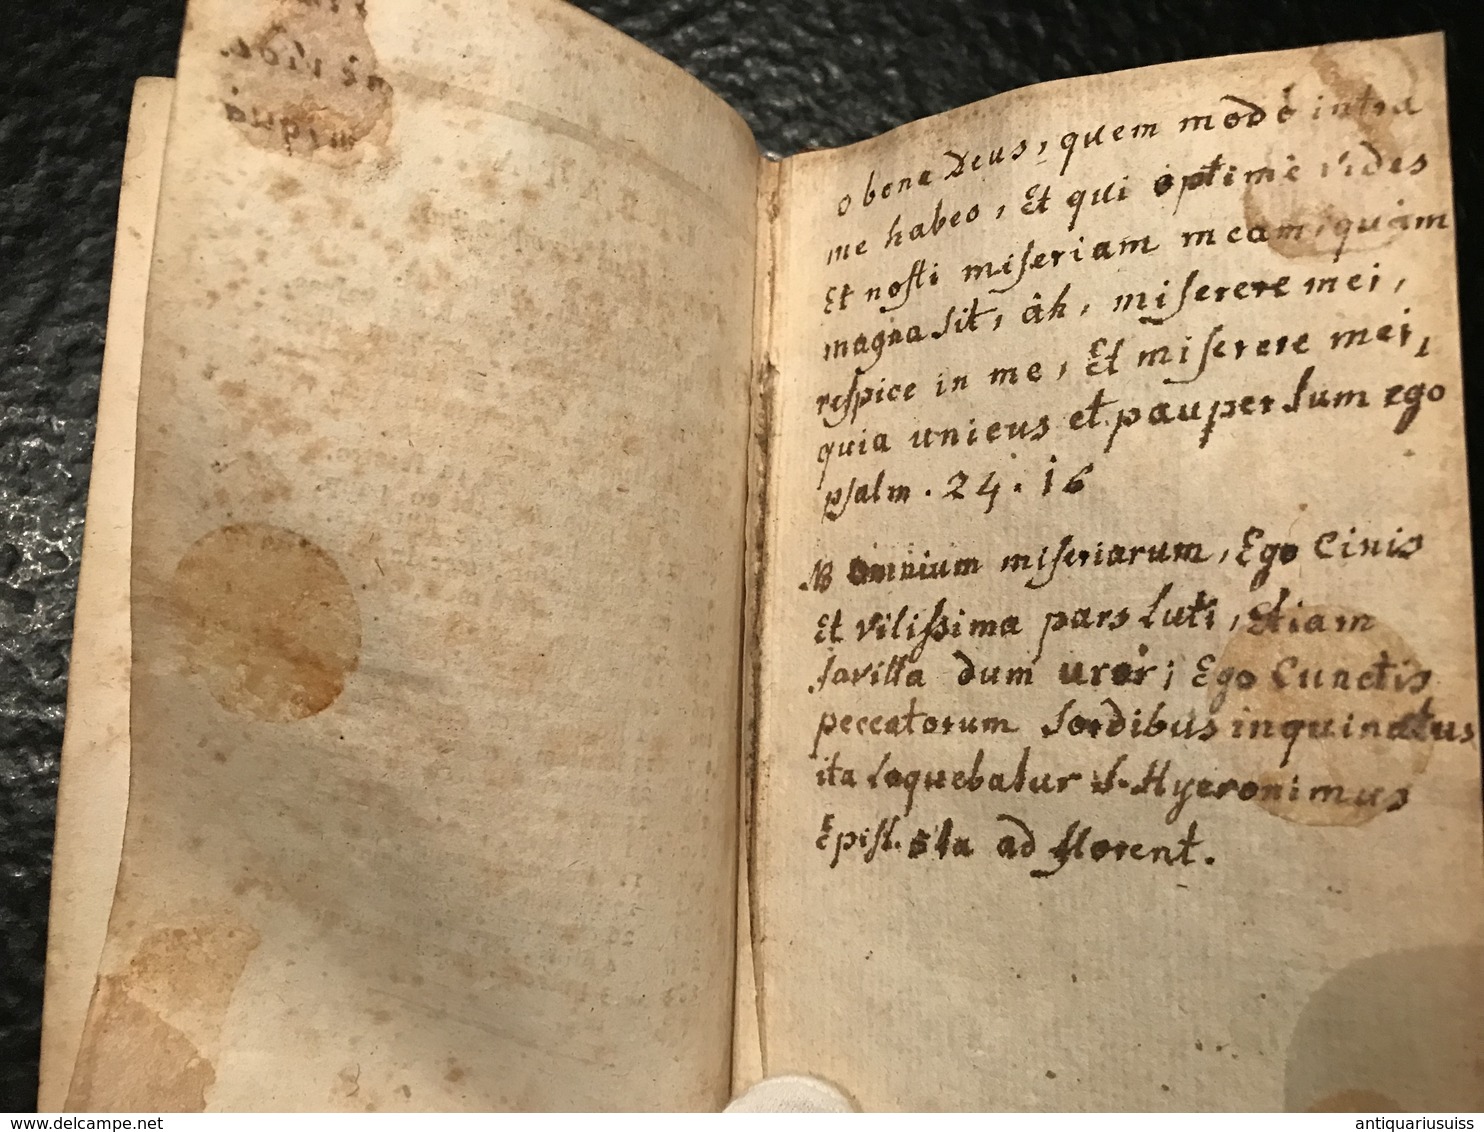 o bone Deus, quem modò intra
me habeo, Et qui optimè vides
Et nosti miseriam meam, quàm
magna sit, âh, miserere mei,
respice in me, Et miserere mei,
quia unicus et pauper sum ego
psalm. 24. 16
NB omnium miseriarum, Ego Cinis
Et vilissima pars luti, Etiam
favilla dum uror; Ego Cunctis
peccatorum sordibus inquinatus
ita loquebatur S. Hyeronimus
Epist. ad florent.
delcampe.net
antiquariusuiss